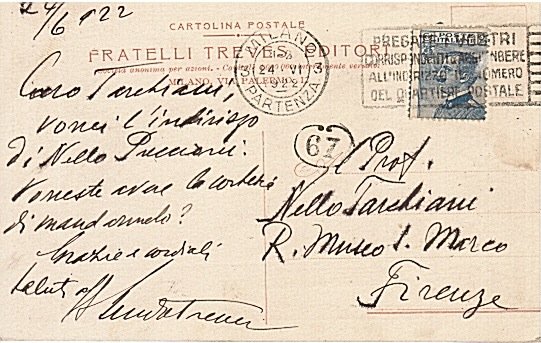 24/6 922
CARTOLINA POSTALE
FRATELLI TREVES, EDITORI
Società anonima per azioni. - Capitale
MILANO, VIA PALERMO, 12
MILANO
24 VI
1922
PARTENZA
PREGATE I VOSTRI
CORRISPONDENTI AGGIUNGERE
ALL'INDIRIZZO IL NUMERO
DEL QUARTIERE POSTALE
67
Caro Tarchiani,
vorrei l'indirizzo
di Nello Puccioni.
Voreste avere la cortesia
di mandarmelo?
Grazie e cordiali
saluti
Prof.
Nello Tarchiani
R. Museo S. Marco
Firenze